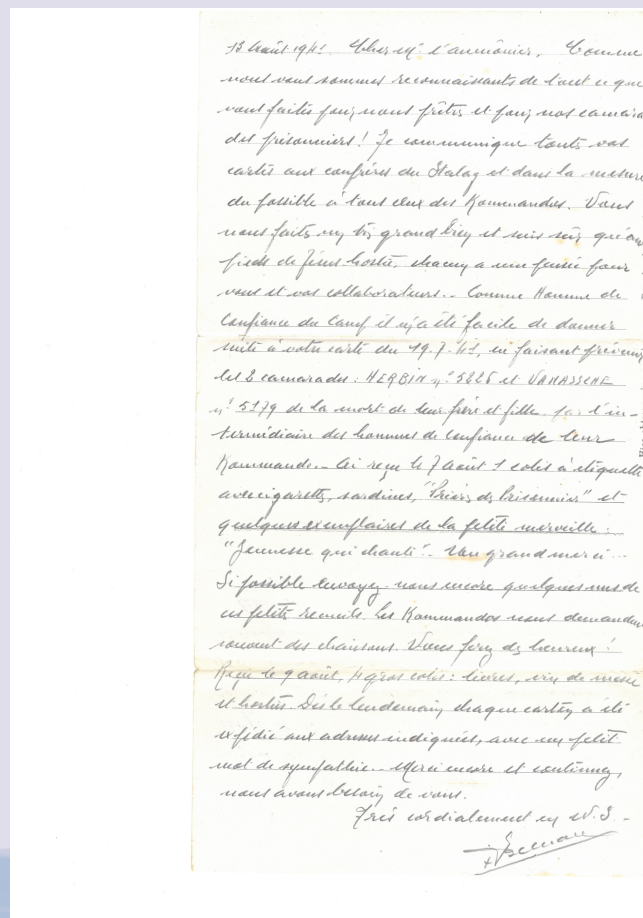 13 Août 1941. Cher Mr l'aumônier. Comme
nous vous sommes reconnaissants de tout ce que
vous faites pour nous prêtres et pour nos camara
des prisonniers ! Je communique toutes vos
cartes aux confrères du Stalag et dans la mesure
du possible à tous ceux des Kommandos. Vous
nous faites un très grand bien et suis sûr qu'aux
pieds de Jésus hostie, chacun a une pensée pour
vous et vos collaborateurs.. Comme Homme de
Confiance du Camp il m'a été facile de donner
suite à votre carte du 19.7.41, en faisant prévenir
les 2 camarades : HERBIN n° 5226 et VANASSCHE
n° 5179 de la mort de leur frère et fille par l'in-
termédiaire des hommes de confiance de leur
Kommando.. Ai reçu le 7 août 1 colis à étiquette
avec cigarettes, sardines, "Prières du Prisonnier" et
quelques exemplaires de la petite merveille :
"Jeunesse qui chante".. Un grand merci...
Si possible envoyez-nous encore quelques uns de
ces petits recueils. Les Kommandos nous demandent
souvent des chansons. Vous ferez des heureux !
Reçu le 9 août, 4 gros colis : livres, vin de messe
et hosties. Dès le lendemain, chaque carton a été
expédié aux adresses indiquées, avec un petit
mot de sympathie.. Merci encore et continuez,
nous avons besoin de vous.
Très cordialement en N.S.